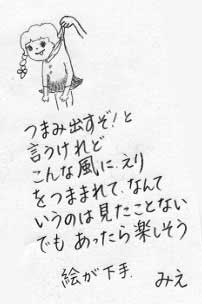 つまみ出すぞ!と
言うけれど
こんな風に、えり
をつままれて、なんて
いうのは見たことない
でもあったら楽しそう
絵が下手、 みえ